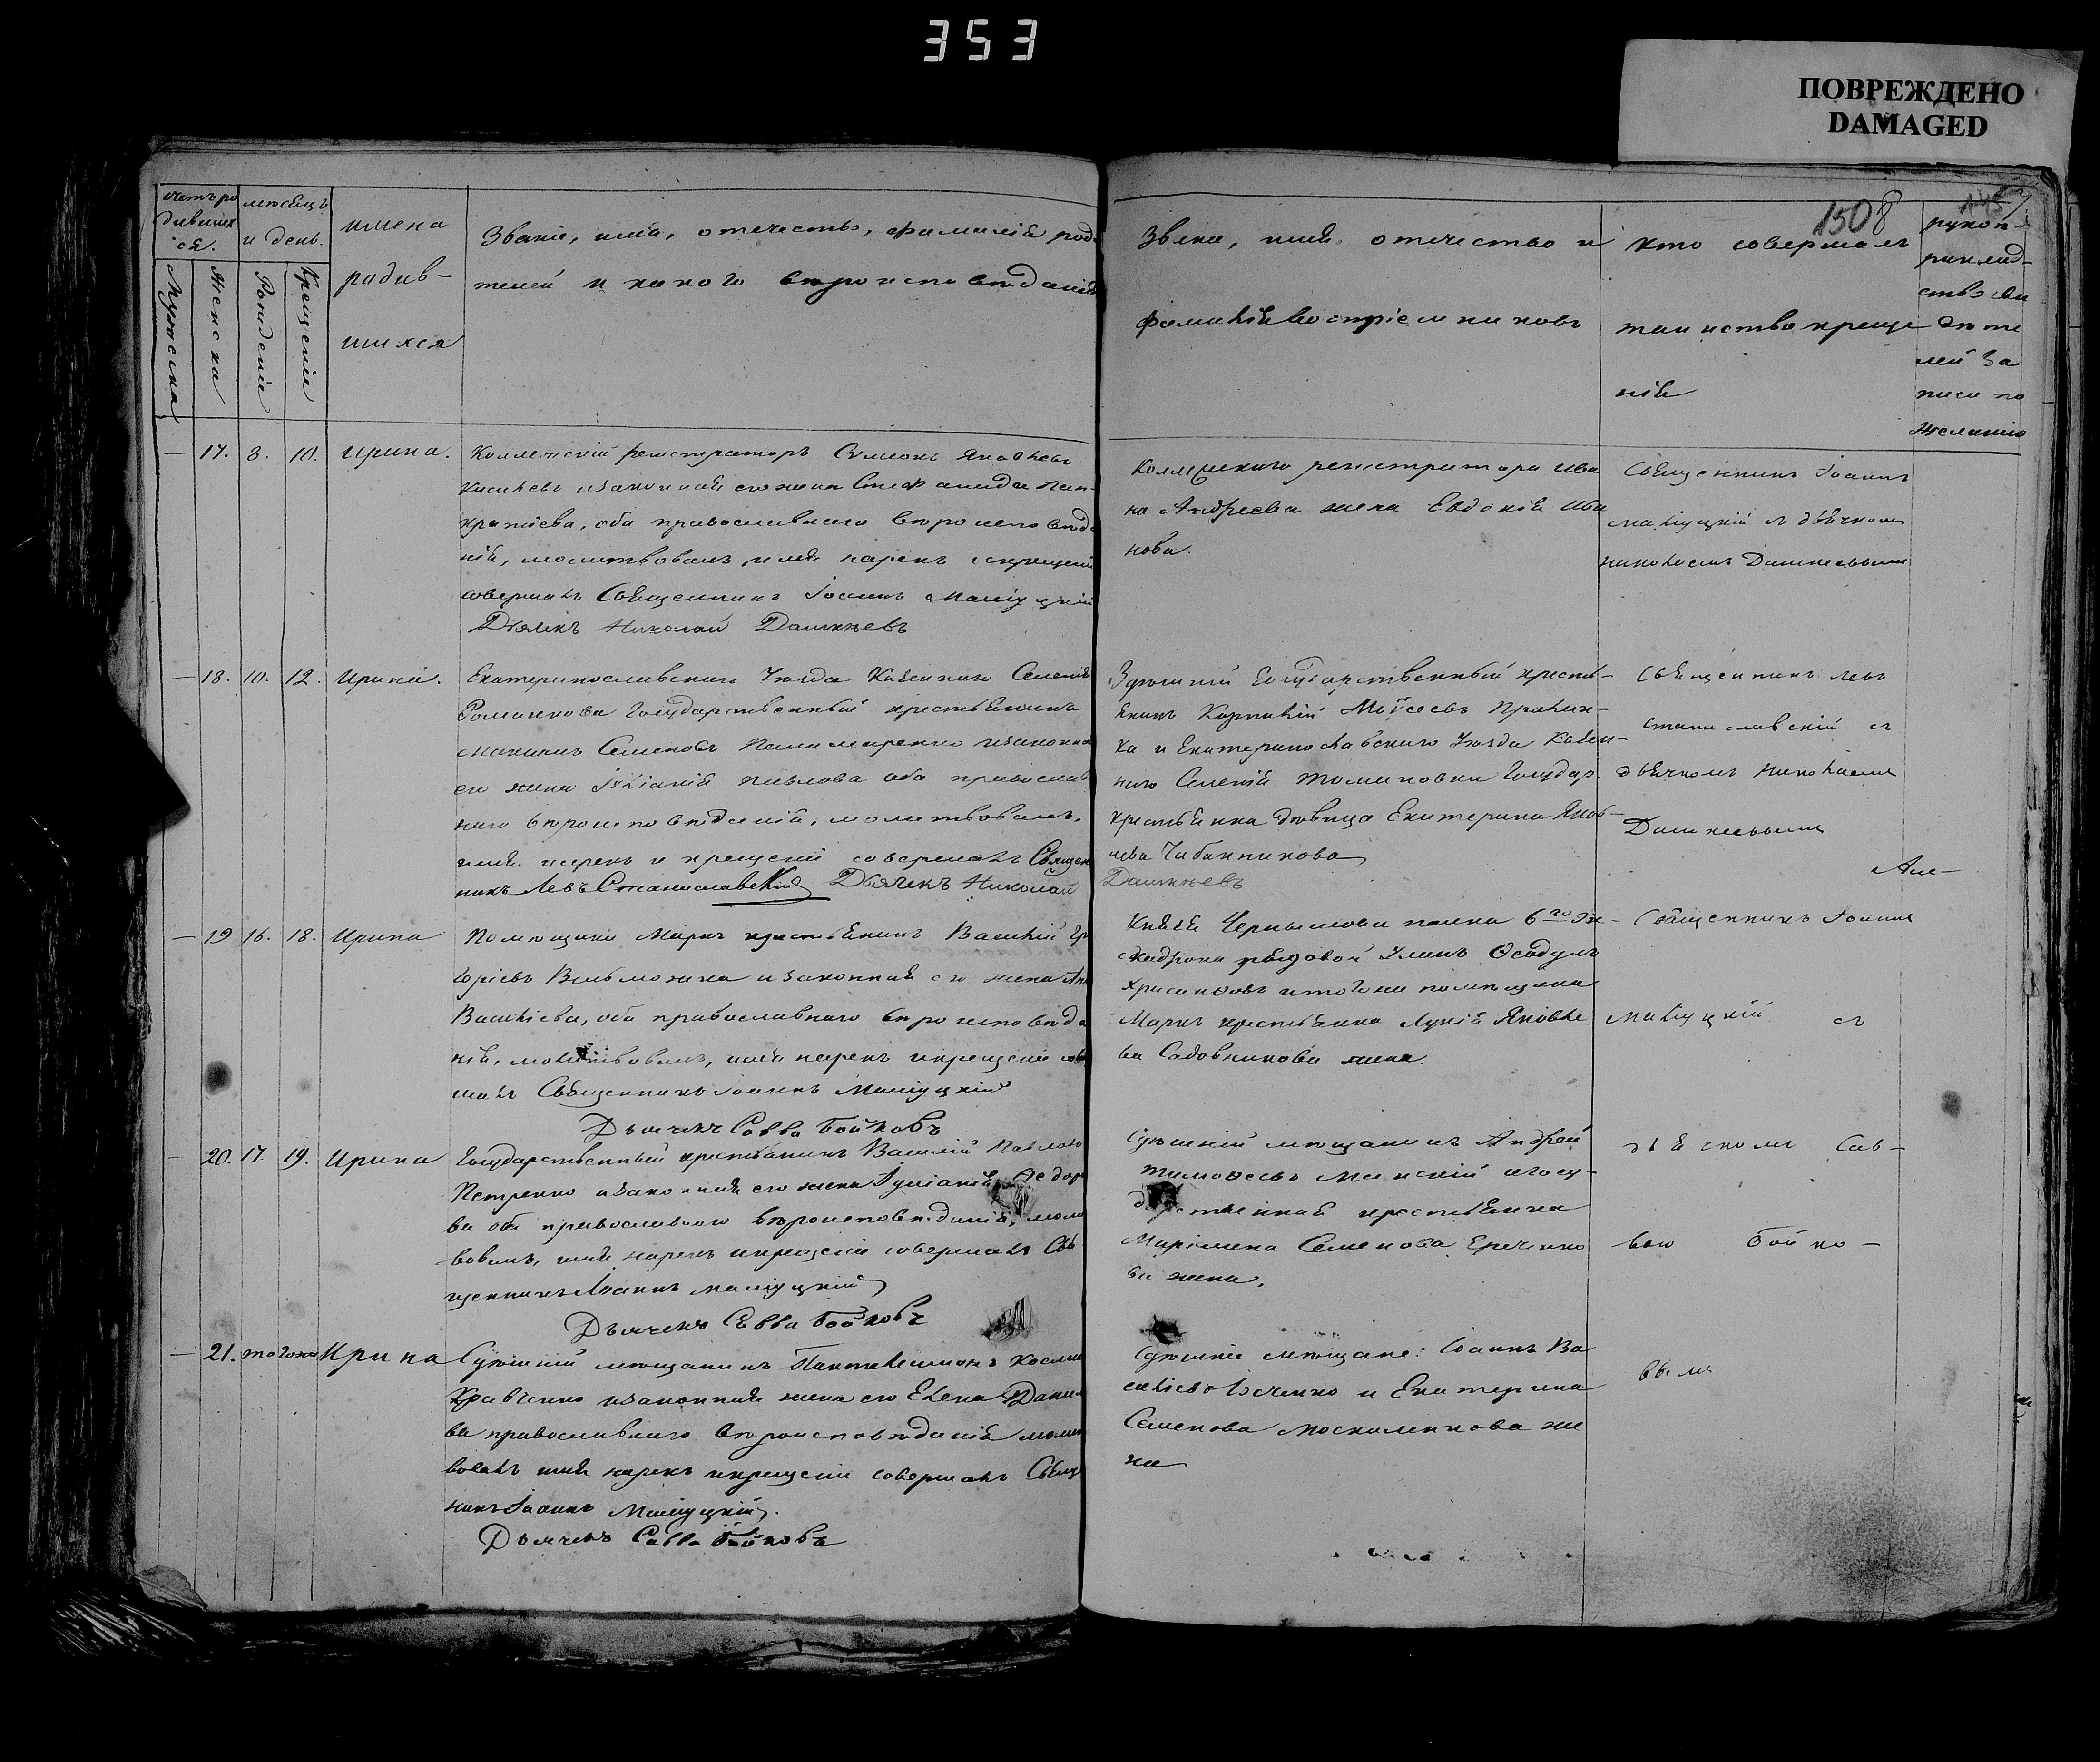 353
ПОВРЕЖДЕНО
DAMAGED
1508
счетъ ро
дивших
ся.
Мужеска
Женска
месяцъ
и день.
Рожденіе
Крещеніе
имена
родив-
шихся
Званіе, имя, отечество, фамилія роди
телей и какого вероисповеданія
Званіе, имя, отечество и
фамилія воспріемниковъ
кто совершалъ
таинство креще
нія
рукоп-
рикład-
ство сви
дѣте
лей за
писи по
желанію
— 17. 8. 10. Ирина.
Коллежскій регистраторъ Симеонъ Яковлевъ
и законная его жена Стефанида Пан-
кратіева, оба православнаго вѣроисповѣда
нія, молитвовалъ, имя нарекъ и крещеніе
совершалъ Священникъ Іоаннъ
Дьячекъ Николай Дашкѣевъ
Коллежскаго регистратора Ива
на Андреева жена Евдокія Ива
нова.
Священникъ Іоаннъ
съ дьячкомъ
Николаемъ
— 18. 10. 12. Ирина.
Екатеринославскаго Уѣзда Казеннаго Селенія
Романкова Государственный крестьянинъ
Семеновъ Паламаренко и законная
его жена Іуліанія Павлова оба православ
наго вѣроисповѣданія, молитвовалъ,
имя нарекъ и крещеніе совершалъ Священ
никъ Левъ Станиславскій Дьячекъ Николай
Здѣшній Государственный кресть-
янинъ Корнилій Моѵсеевъ
ка и Екатеринославскаго Уѣзда Казен-
наго Селенія Томаковки Государ.
крестьянка дѣвица Екатерина Яков-
лева Чабанникова
Дашкѣевъ
Священникъ Левъ
Станиславскій съ
дьячкомъ Николаемъ
— 19 16. 18. Ирина
Помѣщика Маркъ крестьянинъ Василій Гри
горіевъ Вельможка и законная его жена
Василіева, оба православнаго вѣроисповѣда
нія, молитвовалъ, имя нарекъ и крещеніе сове
шалъ Священникъ Іоаннъ
Дьячекъ Савва Бойковъ
Князя Чернышова полка 6го Эс-
кадрона рядовой Уланъ Ѳеодулъ
и тогоже помѣщика
Маркъ крестьянка Лукія Яковле
ва Садовникова жена.
Священникъ Іоаннъ
съ
— 20. 17. 19. Ирина
Государственный крестьянинъ Василій Павловъ
Петренко и законная его жена Іуліанія Ѳедоро
ва оба православнаго вѣроисповѣданія, молит
вовалъ, имя нарекъ и крещеніе совершалъ Свя
щенникъ Іоаннъ
Дьячекъ Савва Бойковъ
Здѣшній мѣщанинъ Андрей
Тимоѳеевъ и госу-
дарственная крестьянка
Семенова
ва жена.
дьячкомъ Сав-
вою Бойко-
— 21. тогоже Ирина
Здѣшній мѣщанинъ Пантелеимонъ Косминъ
Кравченко и законная жена его Елена Данило
ва православнаго вѣроисповѣданія молит
вовалъ имя нарекъ и крещеніе совершалъ Свящ
никъ Іоаннъ
Дьячекъ Савва Бойковъ
Здѣшніе мѣщане: Іоаннъ Ва
силіевъ и Екатерина
Семенова Москаленкова же
на
вымъ